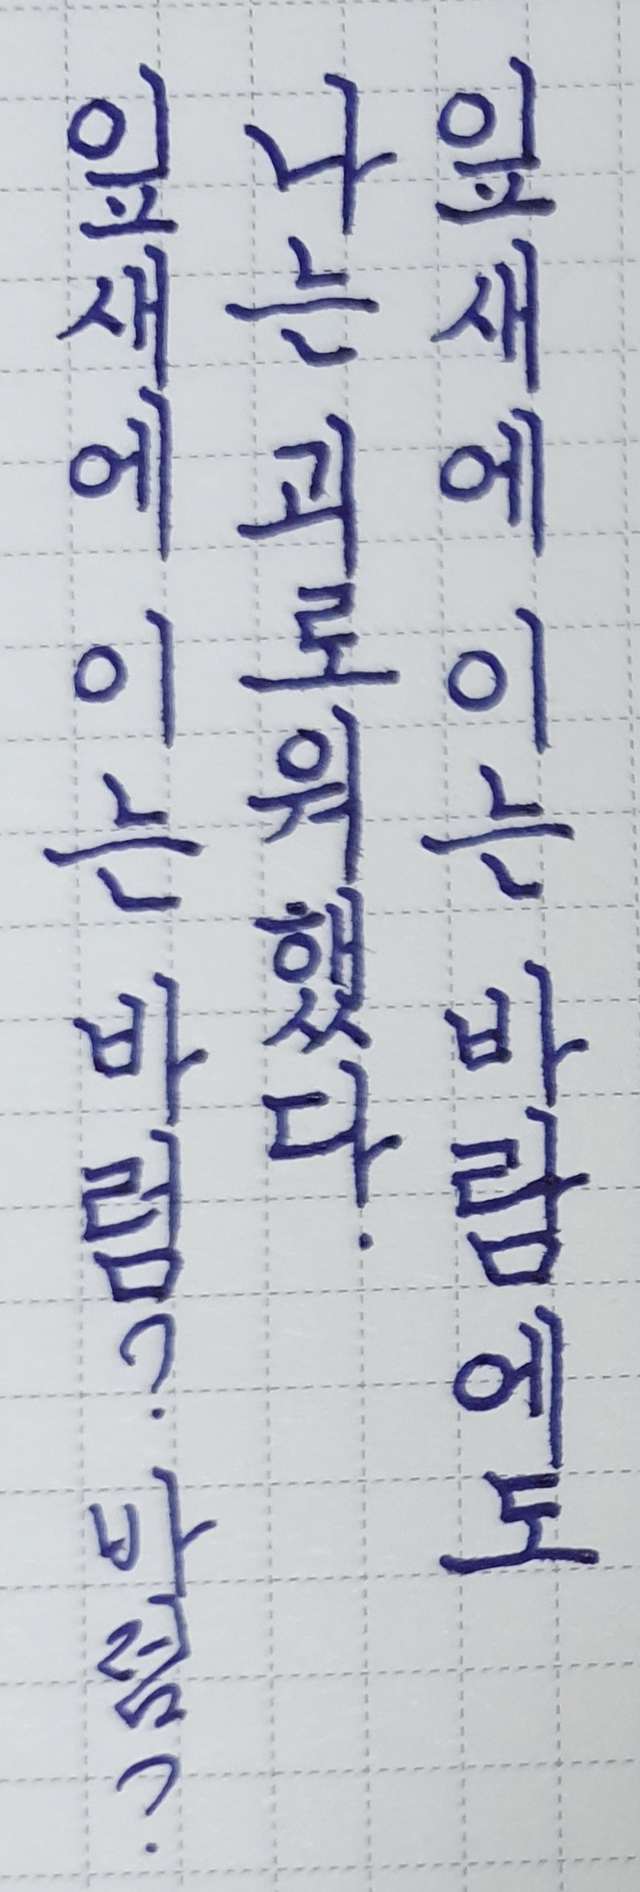 잎새에 이는 바람에도
나는 괴로워했다.
잎새에 이는